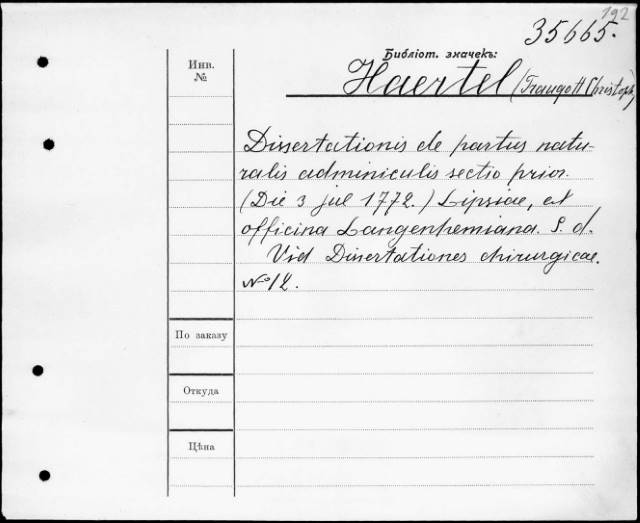 192
35665.
Инв.
№
Библіот. значекъ:
Haertel (Traugott Christoph)
Dissertationis de partus natu-
ralis adminiculis sectio prior.
(Die 3 jul 1772.) Lipsiae, ex
officina Langenhemiana. S. d.
Vid Dissertationes chirurgicae.
№ 12.
По заказу
Откуда
Цѣна